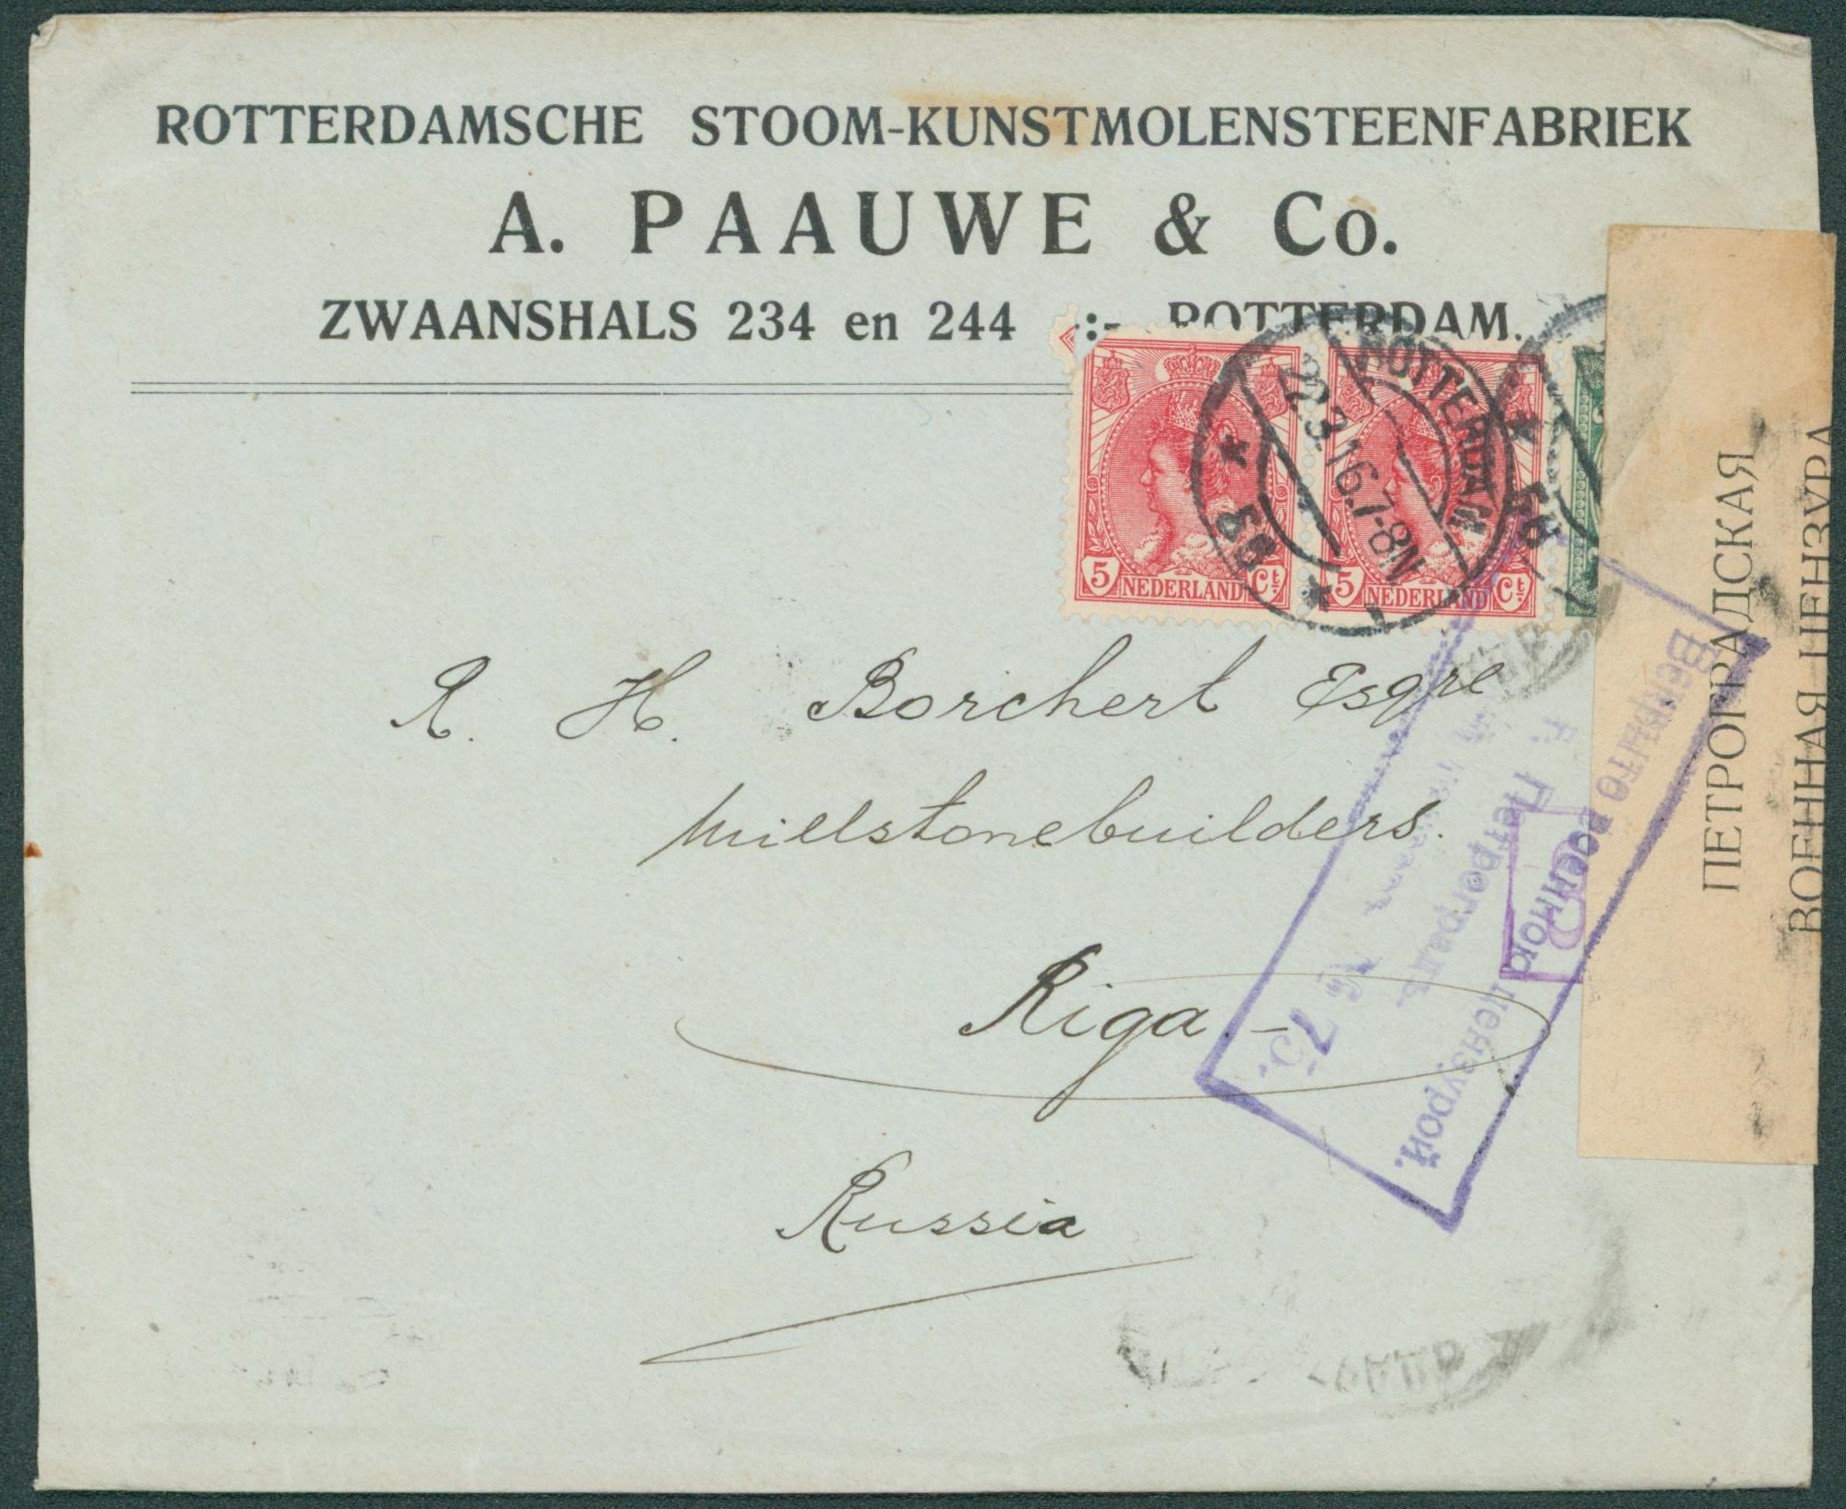 ROTTERDAMSCHE STOOM-KUNSTMOLENSTEENFABRIEK
A. PAAUWE & Co.
ZWAANSHALS 234 en 244 -:- ROTTERDAM.
5 NEDERLAND Ct.
5 NEDERLAND Ct.
ROTTERDAM
22.3.16.7-8N
R. H. Borchert Esqre
Millstonebuilders.
Riga.-
Russia
ПЕТРОГРАДСКАЯ
ВОЕННАЯ ЦЕНЗУРА
Вскрыто военной цензурой.
г. Петроградъ